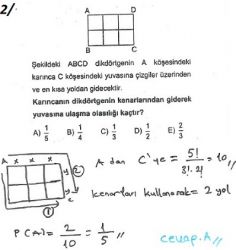 2/
A D
B C
Şekildeki ABCD dikdörtgenin A köşesindeki
karınca C köşesindeki yuvasına çizgiler üzerinden
ve en kısa yoldan gidecektir.
Karıncanın dikdörtgenin kenarlarından giderek
yuvasına ulaşma olasılığı kaçtır?
A) 1/5 B) 1/4 C) 1/3 D) 1/2 E) 2/3
A x x x
y
y
C
②
①
A dan C'ye = 5!/3!.2! = 10 //
kenarları kullanarak = 2 yol
P(A) = 2/10 = 1/5 //
cevap.A //